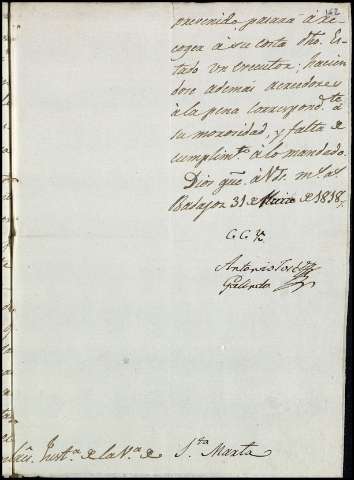 162
prevenido pasará á re-
coger á su costa dho. Es-
tado un executor; hacien-
dose además acreedores
á la pena correspond.te á
su morosidad, y falta de
cumplim.to á lo mandado.
Dios gue. á Vds. m.s a.s
Badajoz 31 de de 1818,,
Antonio José
Galindo
Just.a de la V.a de S.ta Marta